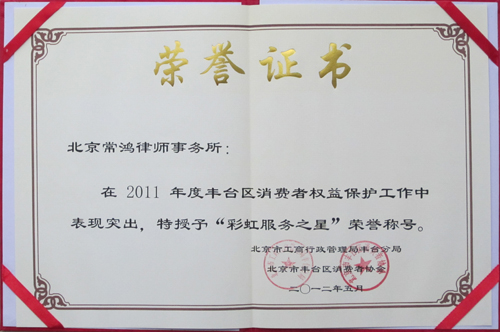 荣誉证书
北京常鸿律师事务所：
在 2011 年度丰台区消费者权益保护工作中
表现突出，特授予“彩虹服务之星”荣誉称号。
北京市工商行政管理局丰台分局
北京市丰台区消费者协会
二〇一二年五月